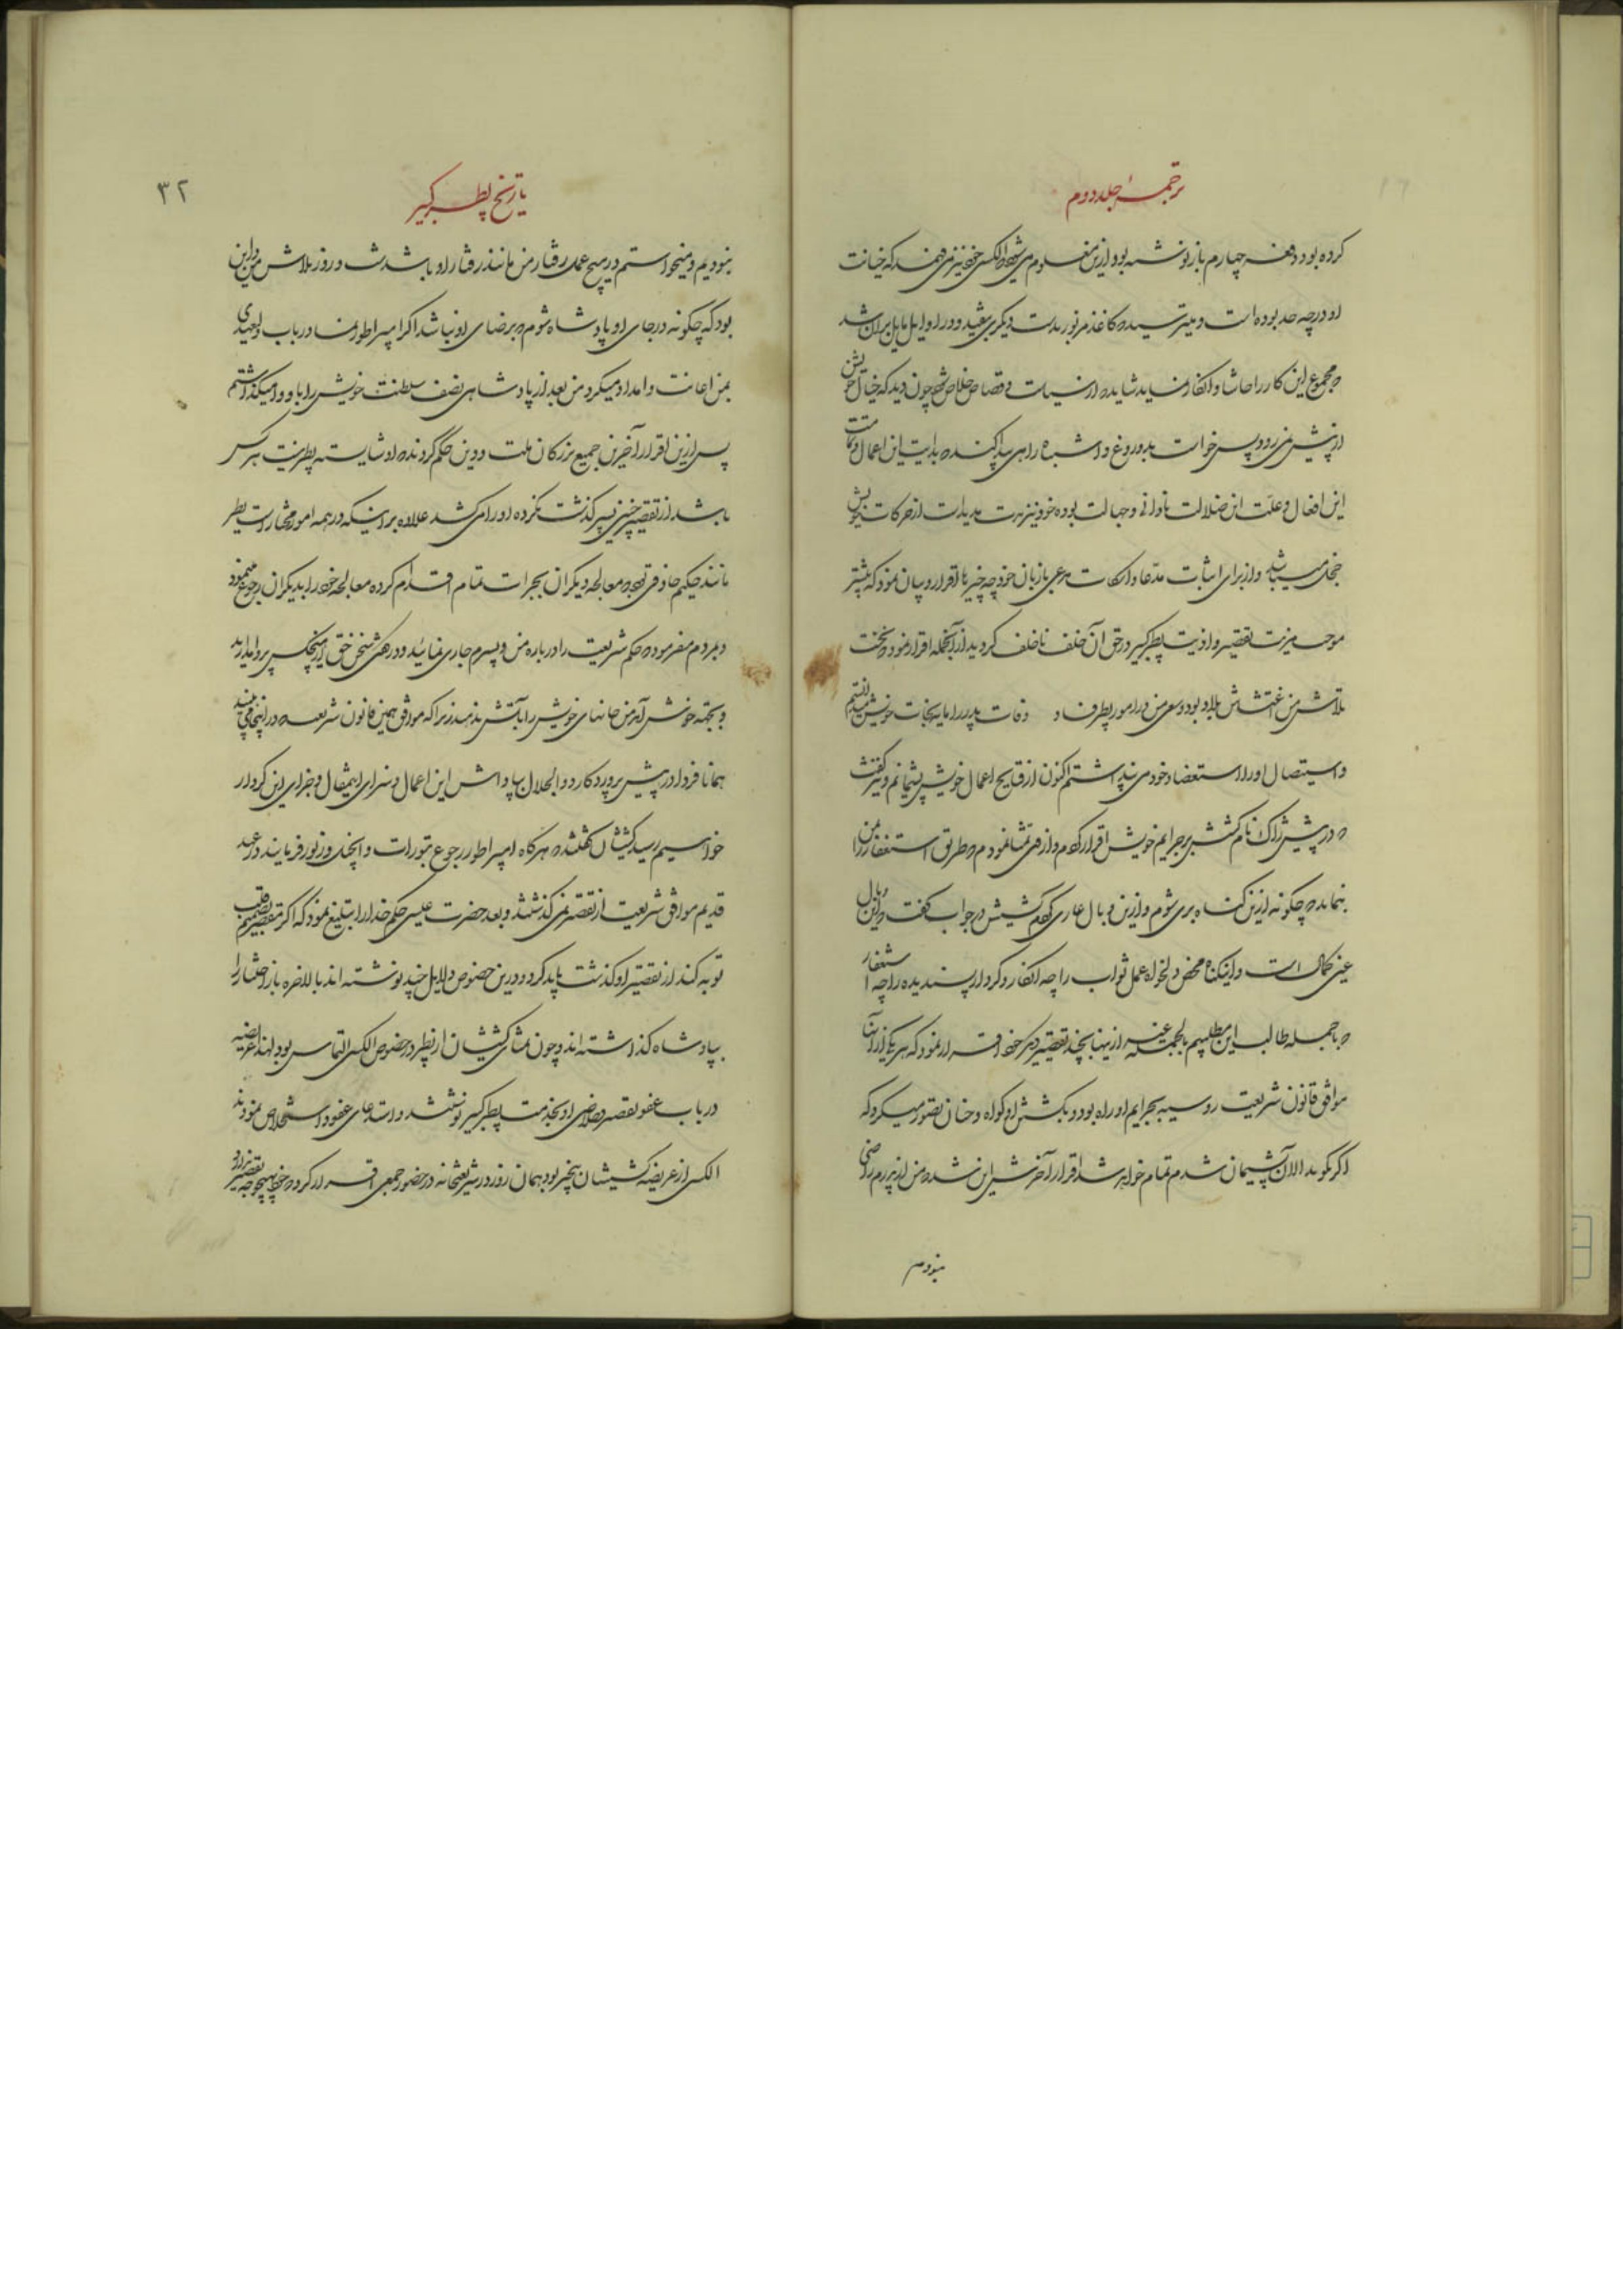 ترجمهٔ جلد دوم
کرده بود و دفعه چهارم باز نوشته بود ازین معلوم میشود که الکسی خود نیز می‌فهمید که خیانت
او در چه حد بوده است و میترسیده که کاغذ مزبور بدست دیگری بیفتد و در اوایل مایل بر آن شد
که مجموع این کار را حاشا و انکار نماید شاید که از سیاست و قصاص خلاص شود چون دید که خیال خویش
از پیش نمی‌رود پس خواست بدروغ و اشتباه راهی پیدا کند که بدایت این اعمال و
این افعال و علت این ضلالت نادانی و جهالت بوده خود نیز از حرکات خویش
خجل میباشد و از برای اثبات مدعا و اسکات مدعی با زبان خود چه چیزها اقرار و بیان نمود که بیشتر
موجب مزیت تقصیر و اذیت پطر کبیر در حق آن خلف ناخلف گردید از آنجمله اقرار نمود که نخست
تلاش من اغتشاش بلاد بود و سعی من در امور پطر فساد وفات پدر را مایه نجات خویش میدانستم
و استیصال او را استعضاد خود می‌پنداشتم اکنون از قبایح اعمال خویش پشیمانم و نیز گفت
که در پیش ژاک نام کشیش بر جرایم خویش اقرار کردم و از وی تمنا نمودم که طریق استغفار را بمن
بنماید که چگونه ازین گناه بری شوم و ازین وبال عاری گردم کشیش در جواب گفت که این وبال
عین کمال است و این گناه محض دلخواه عمل ثواب را چه انکار و کردار پسندیده را چه استغفار
که ما جمله طالب این مطلبیم بالجمله غیر ازینها بچند تقصیر دیگر خود اقرار نمود که هر یک از آنها
موافق قانون شریعت روسیه بجرایم او راه بود و بکشتن او گواه و چنان تصور میکرد که
اگر بگوید الان پشیمان شدم تمام خواهد شد اقرار آخرش این شد که من از پدرم راضی
نبودم
تاریخ پطر کبیر
۳۲
نبودیم و نمیخواستم در هیچ عمل رفتار من مانند رفتار او باشد شب و روز تلاش من این
بود که چگونه در جای او پادشاه شوم که برضای او نباشد اگر امپراطور نمسا در باب ولیعهدی
بمن اعانت و امداد میکرد من بعد از پادشاهی نصف سلطنت خویش را باو وامیگذاشتم
پس ازین اقرار آخرین جمیع بزرگان ملت و دین حکم کردند که او شایسته پطر نیست هر کس
باشد از تقصیر چنین پسر گذشت نکرده او را می‌کشد علاوه بر اینکه در همه امور مختار است پطر
مانند حکیم حاذقی بود که معالجه دیگران بجرات تمام اقدام کرده معالجه خود را بدیگران رجوع مینمود
و بمردم میفرمود که حکم شریعت را درباره من و پسرم جاری نمائید و در گفتن سخن حق از هیچکس پروا مدارید
و بجهة خوش آمد من جانهای خویش را بآتش مدهید زیرا که موافق همین قانون شریعت که در اینجا می‌بینید
همانا فردا در پیش پروردگار ذوالجلال بپاداش این اعمال و سزای این افعال و جزای این کردار
خواهیم رسید کشیشان گفتند که هرگاه امپراطور رجوع بتورات و انجیل و زبور فرمایند در عهد
قدیم موافق شریعت از تقصیر نمی‌گذشتند و بعد حضرت عیسی حکم خدا را تبلیغ نمود که اگر مقصر
توبه کند از تقصیر او گذشت باید کرد و درین خصوص دلایل چند نوشته‌اند بالاخره باز اختیار را
بپادشاه گذاشته‌اند و چون تمنای کشیشان از پطر در خصوص الکسی التماس بود لهذا عریضه
در باب عفو تقصیر او بخدمت پطر کبیر نوشتند و استدعای عفو و استخلاص نمودند
الکسی از عریضه کشیشان بیخبر بود همان روز در شریعتخانه در حضور جمعی اقرار کرده که خود بهیچوجه تقصیر ندارد